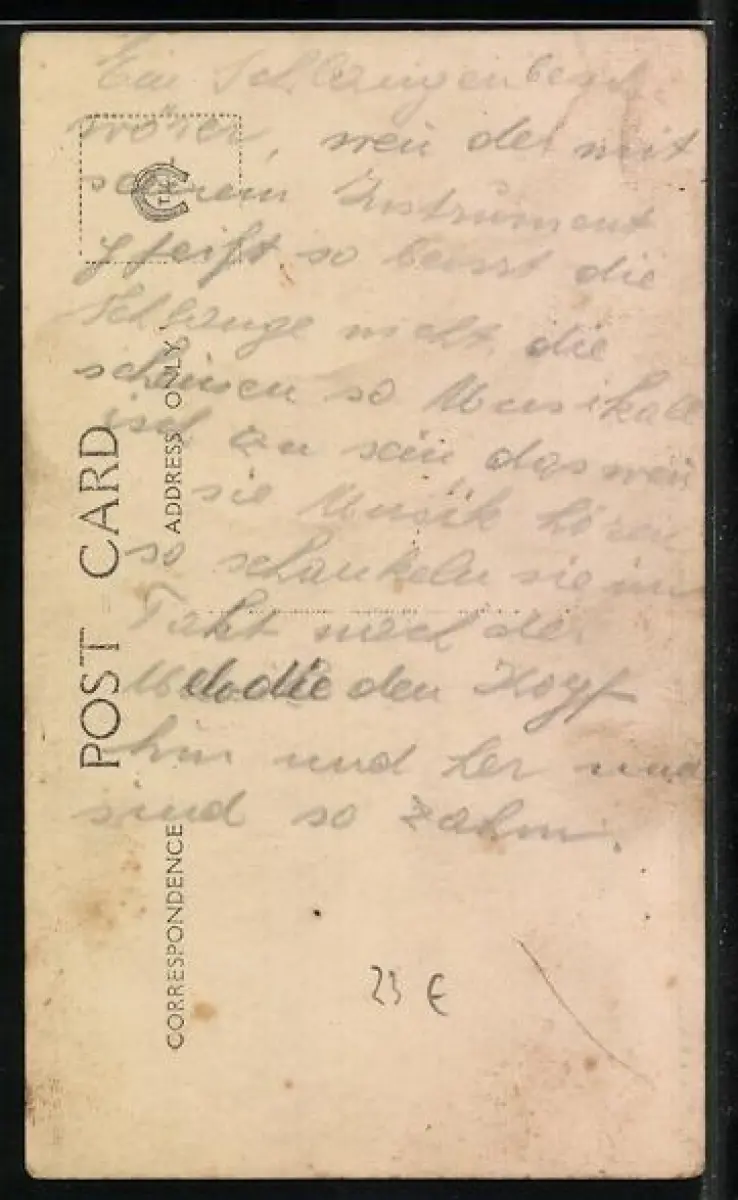 Ein Schlangenbesch-
wörer, wen der mit
seinem Instrument
pfeift so beisst die
Schlange nicht, die
scheinen so Musikal
isch zu sein das wen
sie Musik hören
so schaukeln sie im
Takt nach der
Melodie den Kopf
hin und her und
sind so zahm.
POST CARD
ADDRESS ONLY
CORRESPONDENCE
23 €